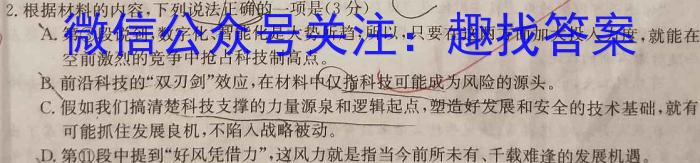 2. 根据材料的内容,下列说法正确的一项是(3分)
微信公众号关注：趣找答案
A. 就能在
空前激烈的竞争中抢占科技制高点。
B. 前沿科技的“双刃剑”效应,在材料中仅指科技可能成为风险的源头。
C. 假如我们搞清楚科技支撑的力量源泉和逻辑起点,塑造好发展和安全的技术基础,就有
可能抓住发展良机,不陷入战略被动。
D. 第⑪段中提到“好风凭借力”,这风力就是指当今前所未有、千载难逢的发展机遇。